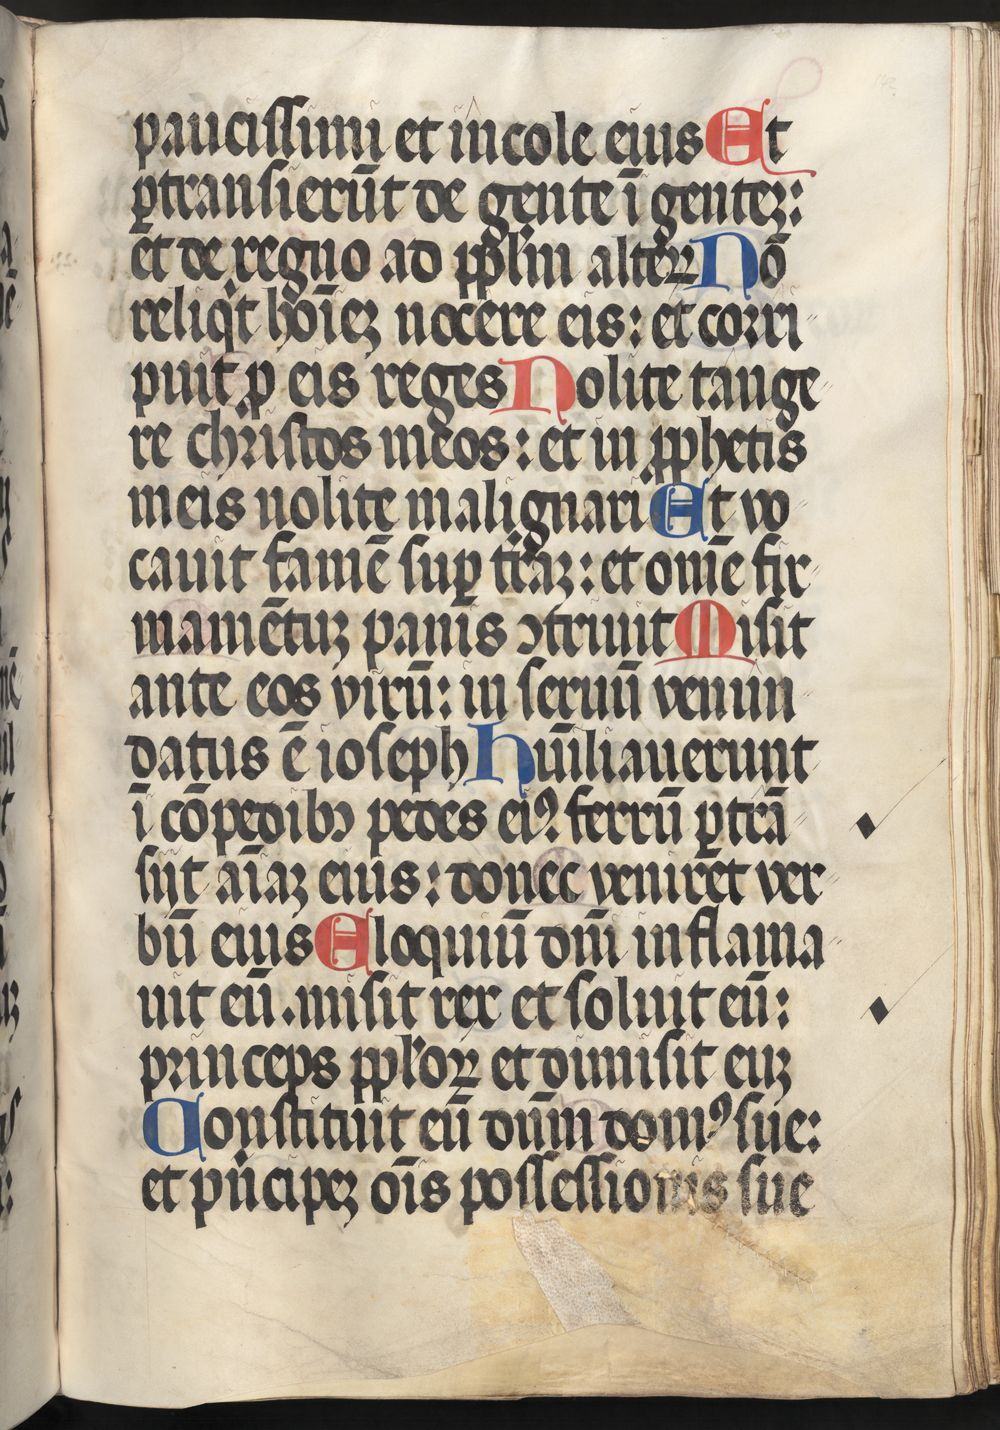 paucissimi et incole eius Et
ꝑtransierūt de gente ī gentez:
et de regno ad ppl'm alterꝝ Nō
reliqͥt hoīez nocere eis: et corri
puit ꝓ eis reges Nolite tange
re christos meos: et in ꝓphetis
meis nolite malignari Et vo
cauit famē suꝑ t'raz: et omē fir
mamētuz panis ꝯtriuit Misit
ante eos virū: in seruū venun
datus ē ioseph Hūiliauerunt
ī cōpedibꝫ pedes eiꝰ ferrū ꝑtrā
sijt aīaz eius: donec veniret ver
bū eius Eloquiū dn̄i inflama
uit eū. misit rex et soluit eū:
princeps ppl'oꝝ et dimisit euz
Constituit eū dn̄m domꝰ sue:
et pͥncipez oīs possessionis sue